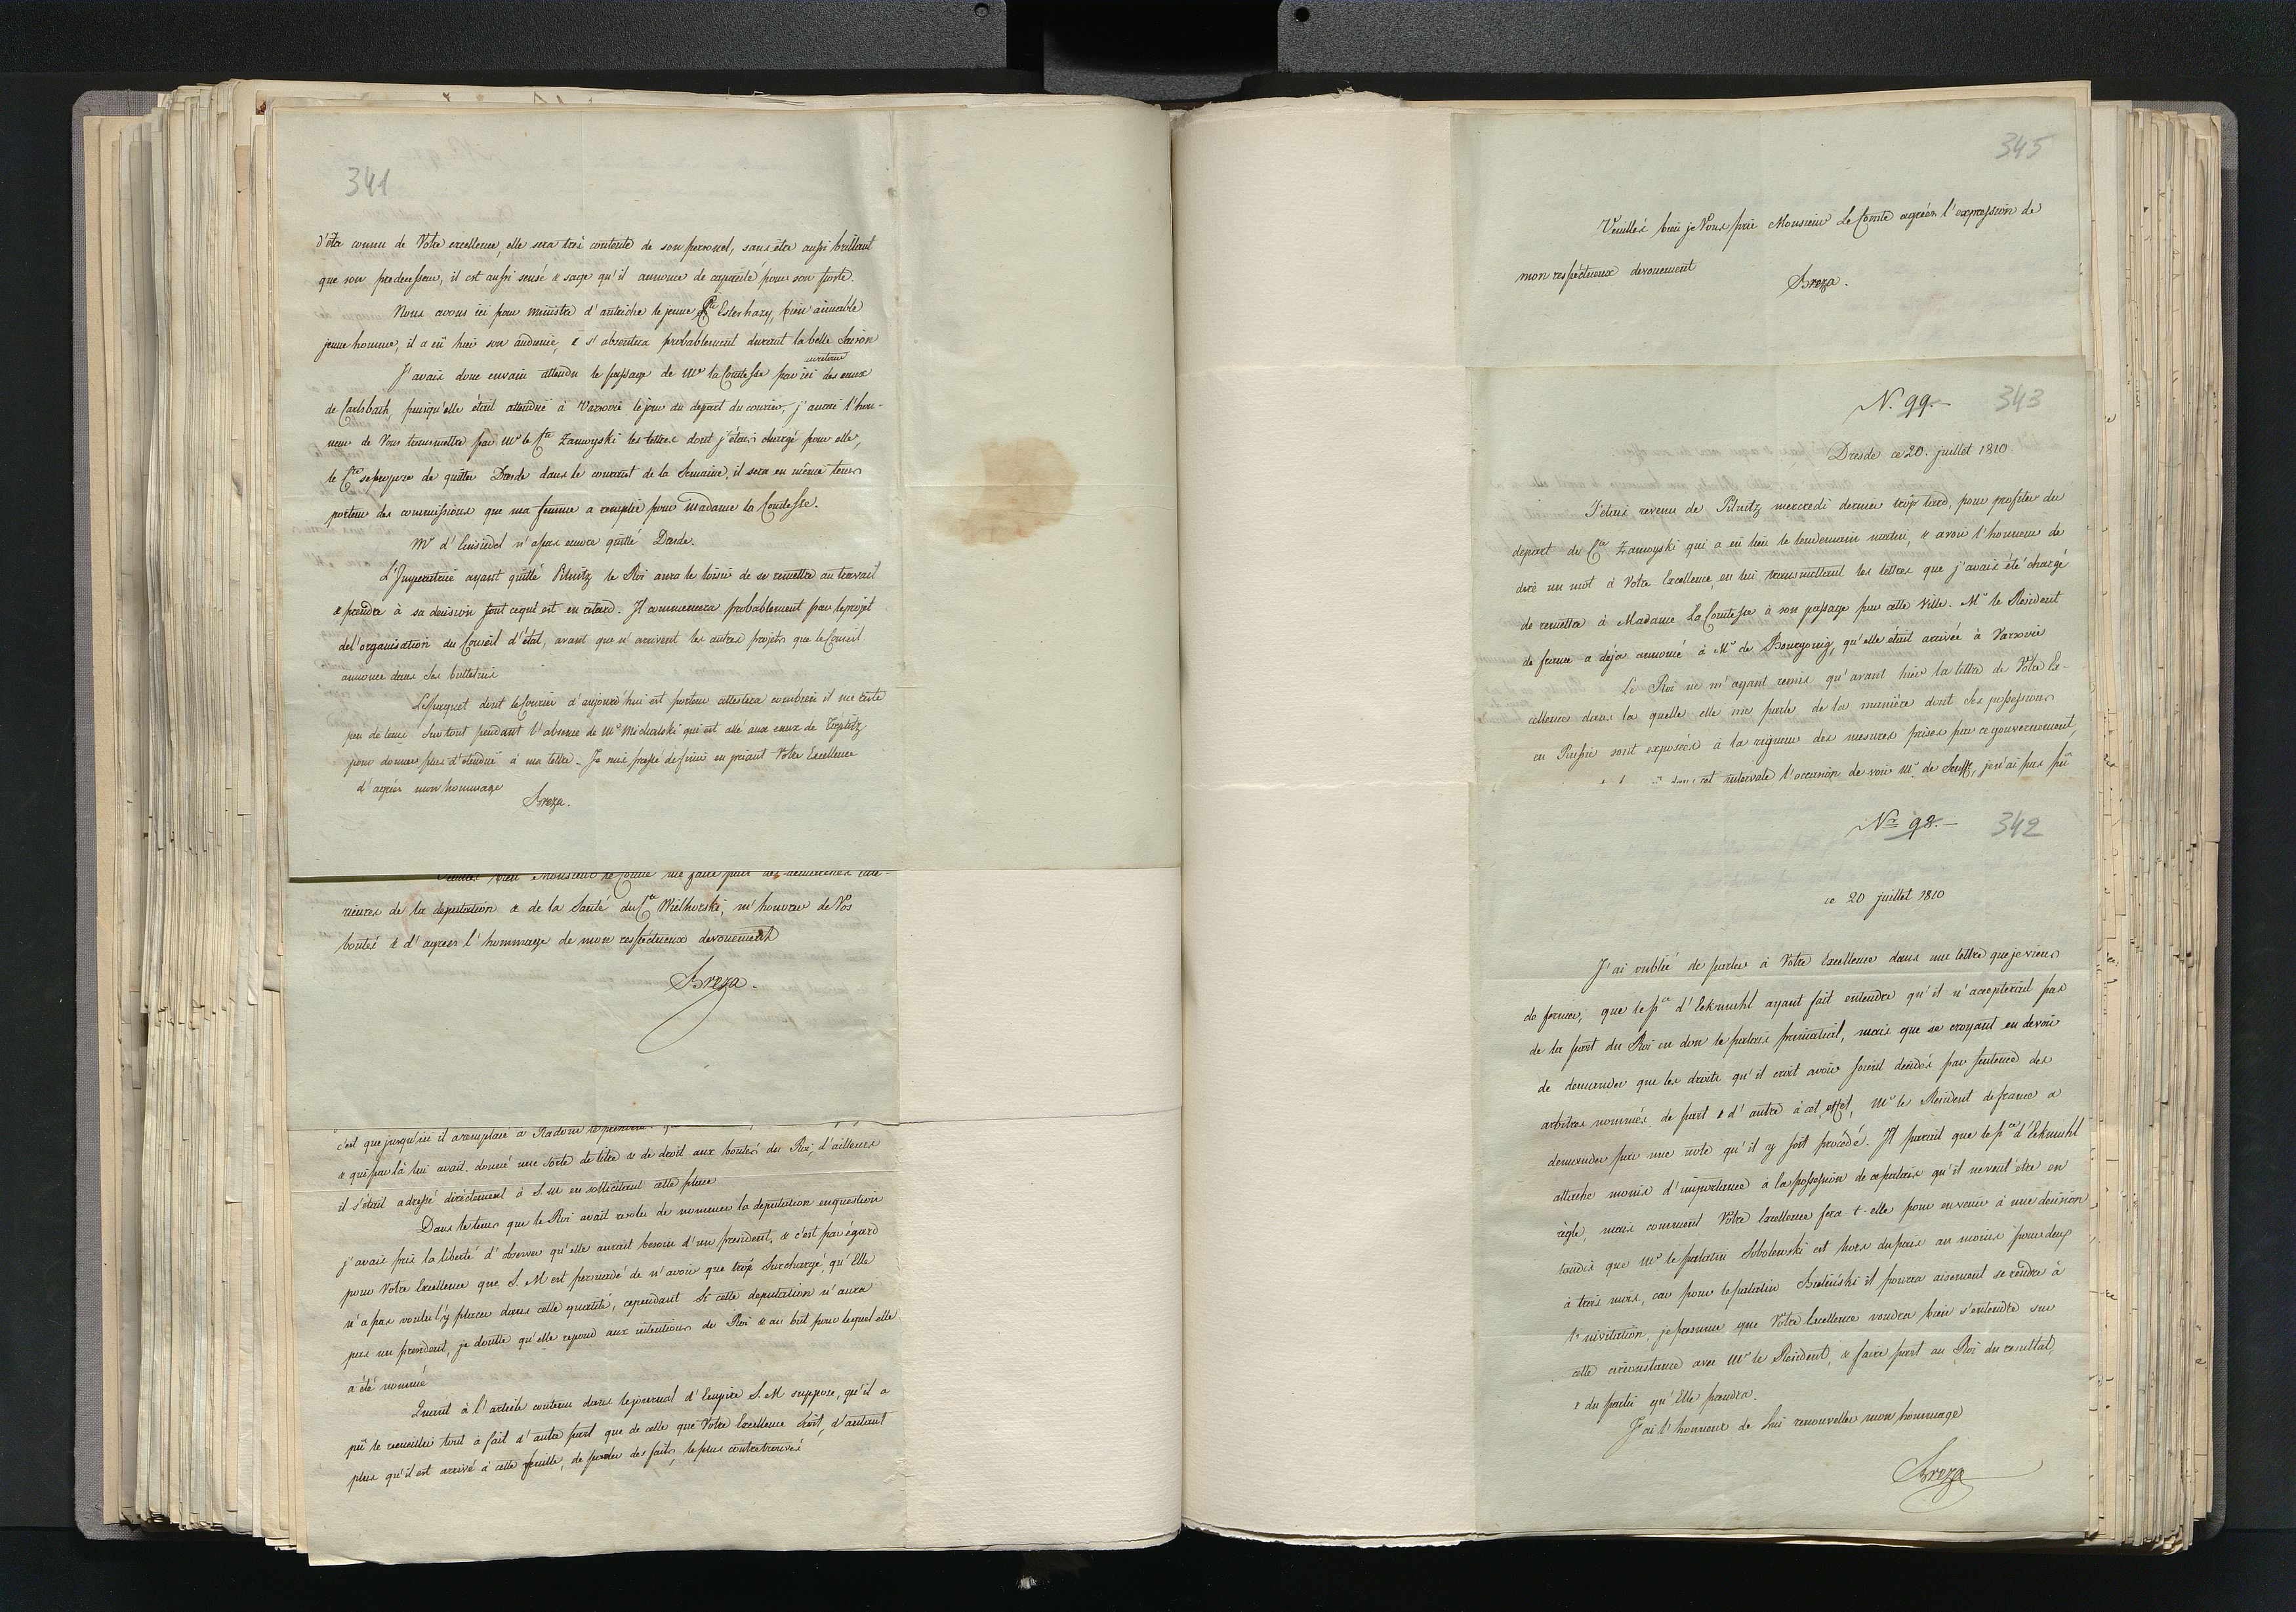 341
d'être connu de Votre excellence, elle sera très contente de son personel, sans être aussi brillant
que son predecesseur, il est aussi sensé & sage qu'il annonce de capacité pour son poste.
Nous avons ici pour ministre d'autriche le jeune Pce Esterhazy, bien aimable
jeune homme, il a eü hier son audience, & s'absentera probablement durant la belle saison
J'avais donc envain attendu le passage de Me la Comtesse par ici des eaux
de Carlsbach, puisqu'elle était attendue à Varsovie le jour du depart du courier, j'aurai l'hon-
neur de Vous transmettre par Mr le Cte Zamoyski les lettres dont j'étais chargé pour elle,
le Cte se propose de quitter Dresde dans le courant de la Semaine, il sera en même tems
porteur des commissions que ma femme a remplie pour Madame la Comtesse.
Mr d'Einsiedel n'a pas encore quitté Dresde.
L'Imperatrice ayant quitté Pilnitz le Roi aura le loisir de se remettre au travail
& prendre à sa decision tout ce qui est en retard. Il commencera probablement par le projet
de l'organisation du Conseil d'état, avant que n'arrivent les autres projets que le Conseil
annonce dans ses bulletins
Le paquet dont le Courier d'aujourd'hui est porteur attestera combien il me reste
peu de tems surtout pendant l'absence de Mr Michalski qui est allé aux eaux de Töplitz
pour donner plus d'etendue à ma lettre. Je suis pressé de finir en priant Votre Excellence
d'agréer mon hommage
Breza.
Veuillés bien Monsieur le Comte me faire part des demarches ulte-
rieures de la deputation & de la Santé du Cte Wielhorski, m'honorer de Vos
bontés & d'agréer l'hommage de mon respectueux devouement
Breza.
c'est que jusqu'ici il a remplacé à Radom
& qui par là lui avait donné une sorte de titre & de droit aux bontés du Roi, d'ailleurs
il s'était adressé directement à S. M en sollicitant cette place
Dans le tems que le Roi avait resolu de nommer la deputation en question
j'avais pris la liberté d'observer qu'elle aurait besoin d'un president, & c'est par égard
pour Votre Excellence que S. M est persuadé de n'avoir que trop Surchargé, qu'Elle
n'a pas voulu l'y placer dans cette qualité, cependant Si cette deputation n'aura
pas un president, je doutte qu'elle repond aux intentions du Roi & au but pour lequel elle
a été nommé
Quant à l'article contenu dans le journal d'Empire S. M suppose, qu'il a
pü le recueillir tout à fait d'autre part que de celle que Votre Excellence croit, d'autant
plus qu'il est arrivé à cette feuille, de parler des faits, le plus controuvés
345
Veuillés bien je Vous prie Monsieur Le Comte agréer l'expression de
mon respectueux devouement
Breza.
N. 99. 343
Dresde ce 20. juillet 1810
J'étais revenu de Pilnitz mercredi dernier trop tard, pour profiter du
depart du Cte Zamoyski qui a eu lieu le lendemain matin, & avoir l'honneur de
dire un mot à Votre Excellence, en lui transmettant les lettres que j'avais été chargé
de remettre à Madame La Comtesse à son passage par cette Ville. Mr le Resident
de france a déja annoncé à Mr de Bourgoing, qu'elle était arrivée à Varsovie
Le Roi ne m'ayant remis qu'avant hier la lettre de Votre Ex-
cellence dans la quelle elle me parle de la manière dont Ses possessions
en Russie sont exposées à la rigueur des mesures prises par ce gouvernement,
dans cet intervale l'occasion de voir Mr de Senfft, je n'ai pas pü
Nr 98. 342
ce 20 juillet 1810
J'ai oublié de parler à Votre Excellence dans une lettre que je viens
de fermer, que le Pce d'Eckmuhl ayant fait entendre qu'il n'accepterait pas
de la part du Roi en don le palais primatial, mais que se croyant en devoir
de demander que les droits qu'il croit avoir soient decidés par sentence des
arbitres nommés de part & d'autre à cet effet, Mr le Resident de france a
demander par une note qu'il y soit procedé. Il parait que le Pce d'Eckmuhl
attache moins d'importance à la possession de ce palais qu'il ne veut être en
règle, mais comment Votre Excellence fera-t-elle pour en venir à une decision
tandis que Mr le palatin Sobolewski est hors du pais au moins pour deux
à trois mois, car pour le palatin Bielinski il pourra aisement se rendre à
l'invitation, je presume que Votre Excellence voudra bien s'entendre sur
cette circonstance avec Mr le Resident, & faire part au Roi du resultat,
& du partie qu'Elle prendra.
J'ai l'honneur de Lui renouveller mon hommage
Breza